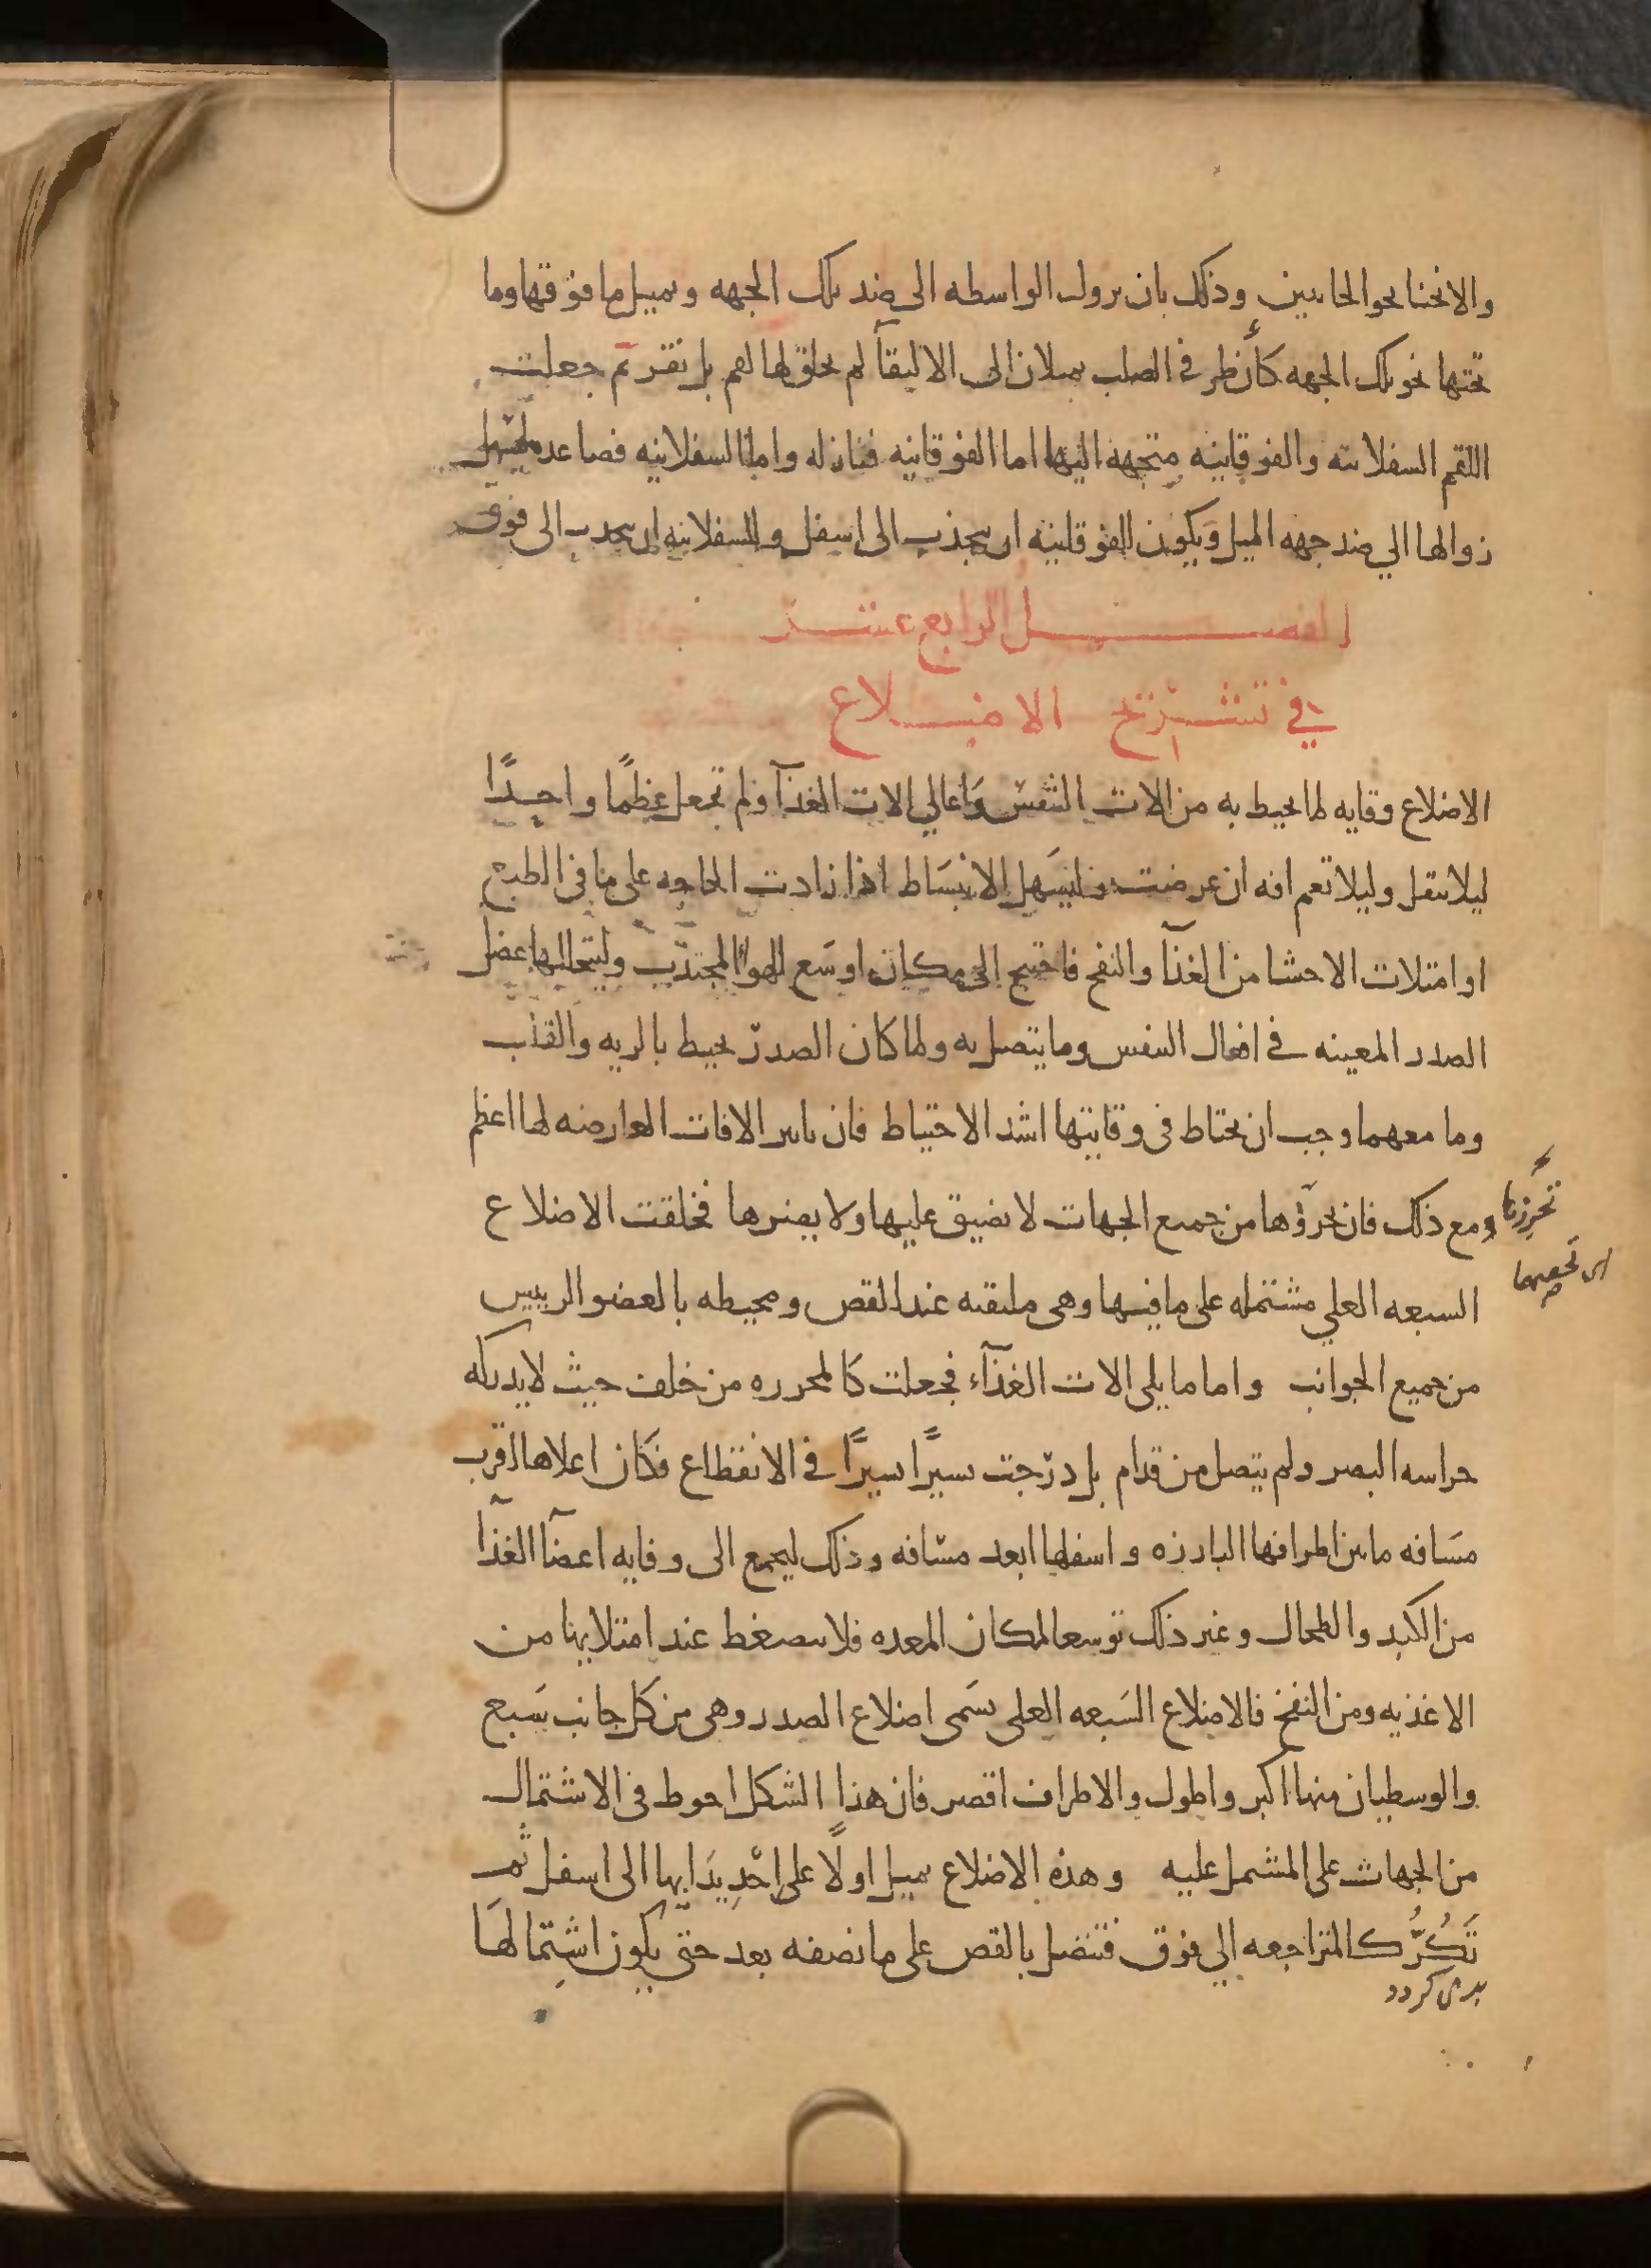 والانحنا نحو الجانبين وذلك بان يزول الواسطه الى ضد تلك الجهه ويميل ما فوقها وما
تحتها نحو تلك الجهه كأن ظر فى الصلب يميلان الى الالتقآ لم يخلق لها لقم بل نقر ثم جعلت
اللقم السفلانيه والفوقانيه متجهه اليها اما الفوقانيه فنازله واما السفلانيه فصاعده ليسهل
زوالها الي ضد جهه الميل وَيكون للفوقانيه ان ينجذب الى اسفل وللسفلانيه ان ينجذب الى فوق
الفصل الرابع عشر
في تشريح الاضلاع
الاضلاع وقايه لما يحيط به من الات التنفس وَاعالي الات الغذآ ولم تجعل عظمًا واحدًا
ليلا يثقل وليلا تعم افه ان عرضت وليسَهل الانبسَاط اذا زادت الحاجه على ما فى الطبع
او امتلات الاحشا من الغذآ والنفخ فاحتيج الى مكان اوسَع للهوا المجتذب وليتخللها عضل
الصدر المعينه في افعال التنفس وما يتصل به ولما كان الصدر يحيط بالريه والقلب
وما معهما وجب ان يحتاط فى وقايتها اشد الاحتياط فان تاثير الافات العارضه لها اعظم
ومع ذلك فان تحرزها من جميع الجهات لا يضيق عليها ولا يضرها فخلقت الاضلاع
السبعه العلي مشتمله على ما فيها وهى ملتقيه عند القص ومحيطه بالعضو الرييس
من جميع الجوانب واما ما يلى الات الغذآء فجعلت كالمحرزه من خلف حيث لا يدركه
حراسه البصر ولم يتصل من قدام بل درّجت يسيرًا يسيرًا في الانقطاع فكَان اعلاها اقرب
مسَافه ما بين اطرافها البارزه واسفلها ابعد مسَافه وذلك ليجمع الى وقايه اعضآ الغذآ
من الكبد والطحال وغير ذلك توسعا لمكان المعده فلا ينضغط عند امتلايها من
الاغذيه ومن النفخ فالاضلاع السَبعه العلى يسَمى اضلاع الصدر وهى من كل جانب سَبع
والوسطيان منها اكبر واطول والاطراف اقصر فان هذا الشكل احوط فى الاشتمال
من الجهات على المشتمل عليه وهذه الاضلاع يميل اولًا على احْدِيدَابها الى اسفل ثُم
تَكُرُّ كالمتراجعه الي فوق فتتصل بالقص على ما نصفه بعد حتى يكون اشتمالهَا